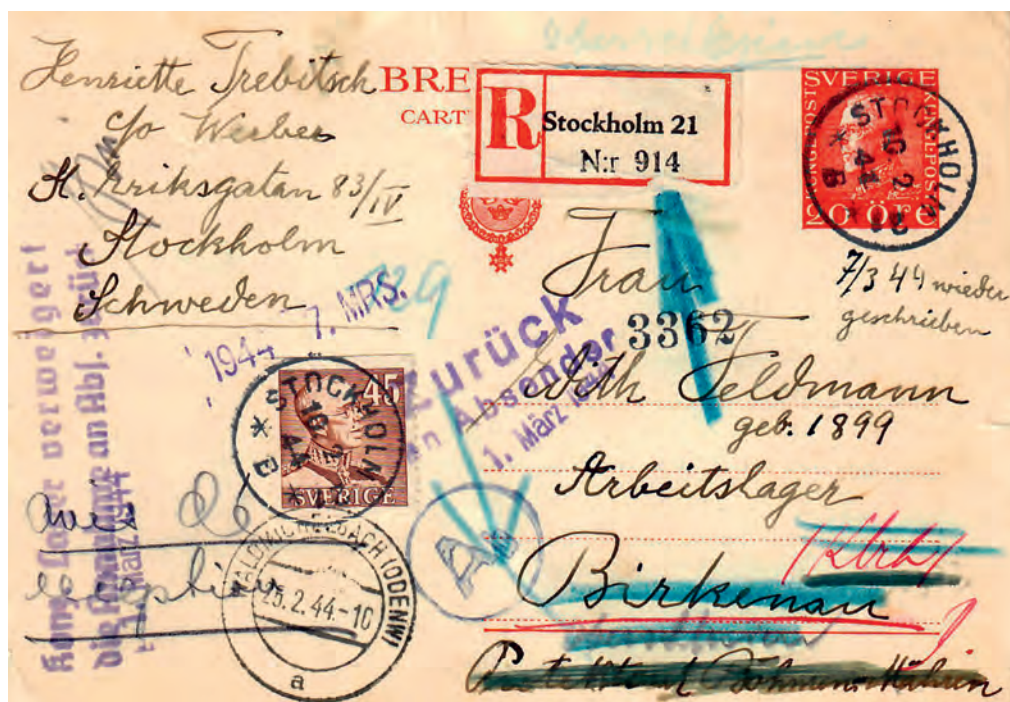 Henriette Trebitsch
c/o Werber
St. Eriksgatan 83/IV
Stockholm
Schweden
BRE
CART
R
Stockholm 21
N:r 914
SVERIGE
20 ÖRE
STOCKHOLM
10 2
44
B
7/3 44 wieder
geschrieben
Frau
3362
Edith Feldmann
geb. 1899
Arbeitslager
Birkenau
Protektorat Böhmen-Mähren
Zurück
an Absender
1. März 1944
7. MRS.
1944
45
SVERIGE
STOCKHOLM
10 2
44
B
avis de
réception
WALDMICHELBACH (ODENW)
25.2.44.-10
a
Konz. Lager verweigert
die Annahme an Abs. zurück
März 1944